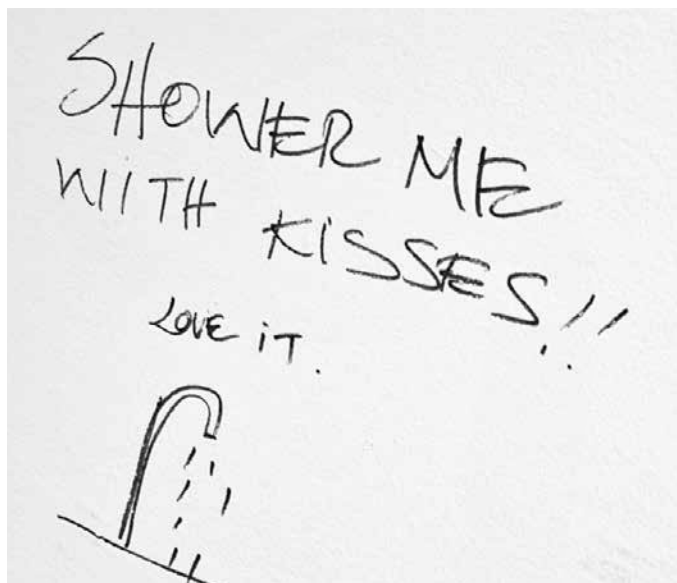 SHOWER ME
WITH KISSES!!
LOVE iT.